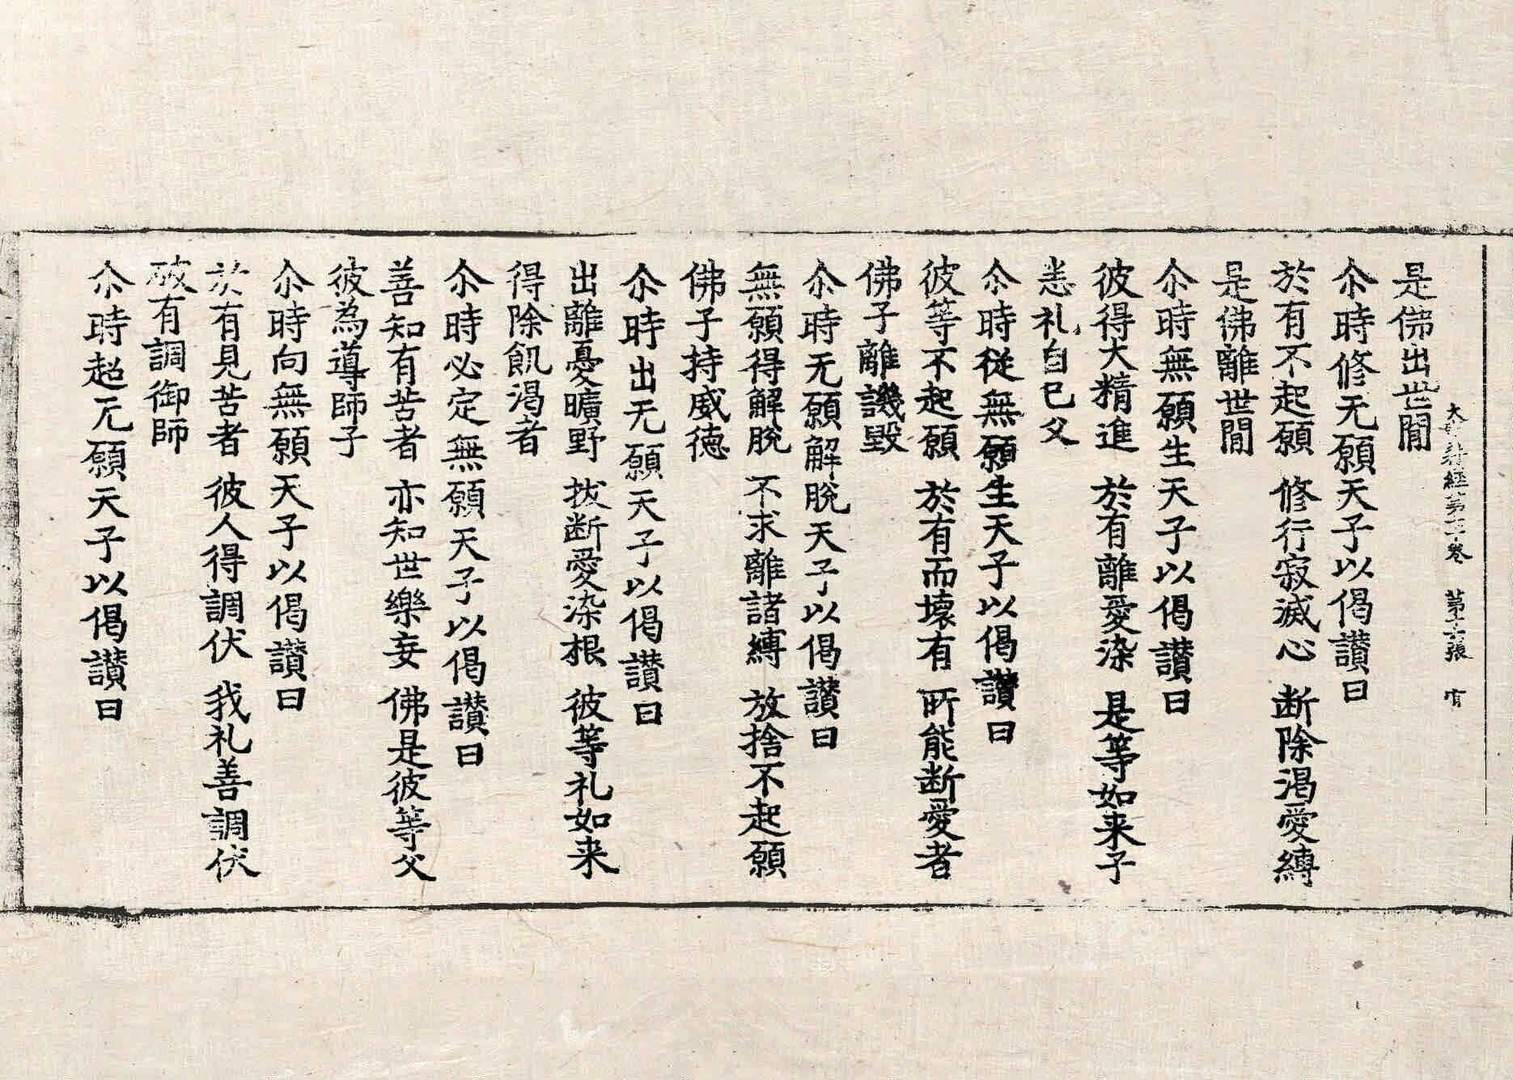 經第 卷 第十六張
是佛出世間
尒時修无願天子以偈讃曰
於有不起願 修行寂滅心 断除渴愛縛
是佛離世間
尒時無願生天子以偈讃曰
彼得大精進 於有離愛染 是等如来子
恙礼自已父
尒時従無願生天子以偈讃曰
彼等不起願 於有而壊有 所能断愛者
佛子離譏毀
尒時无願解脫天子以偈讃曰
無願得解脫 不求離諸縛 放捨不起願
佛子持威德
尒時出无願天子以偈讃曰
出離憂曠野 拔断愛染根 彼等礼如来
得除飢渴者
尒時必定無願天子以偈讃曰
善知有苦者 亦知世樂妄 佛是彼等父
彼為導師子
尒時向無願天子以偈讃曰
於有見苦者 彼人得調伏 我礼善調伏
破有調御師
尒時超无願天子以偈讃曰